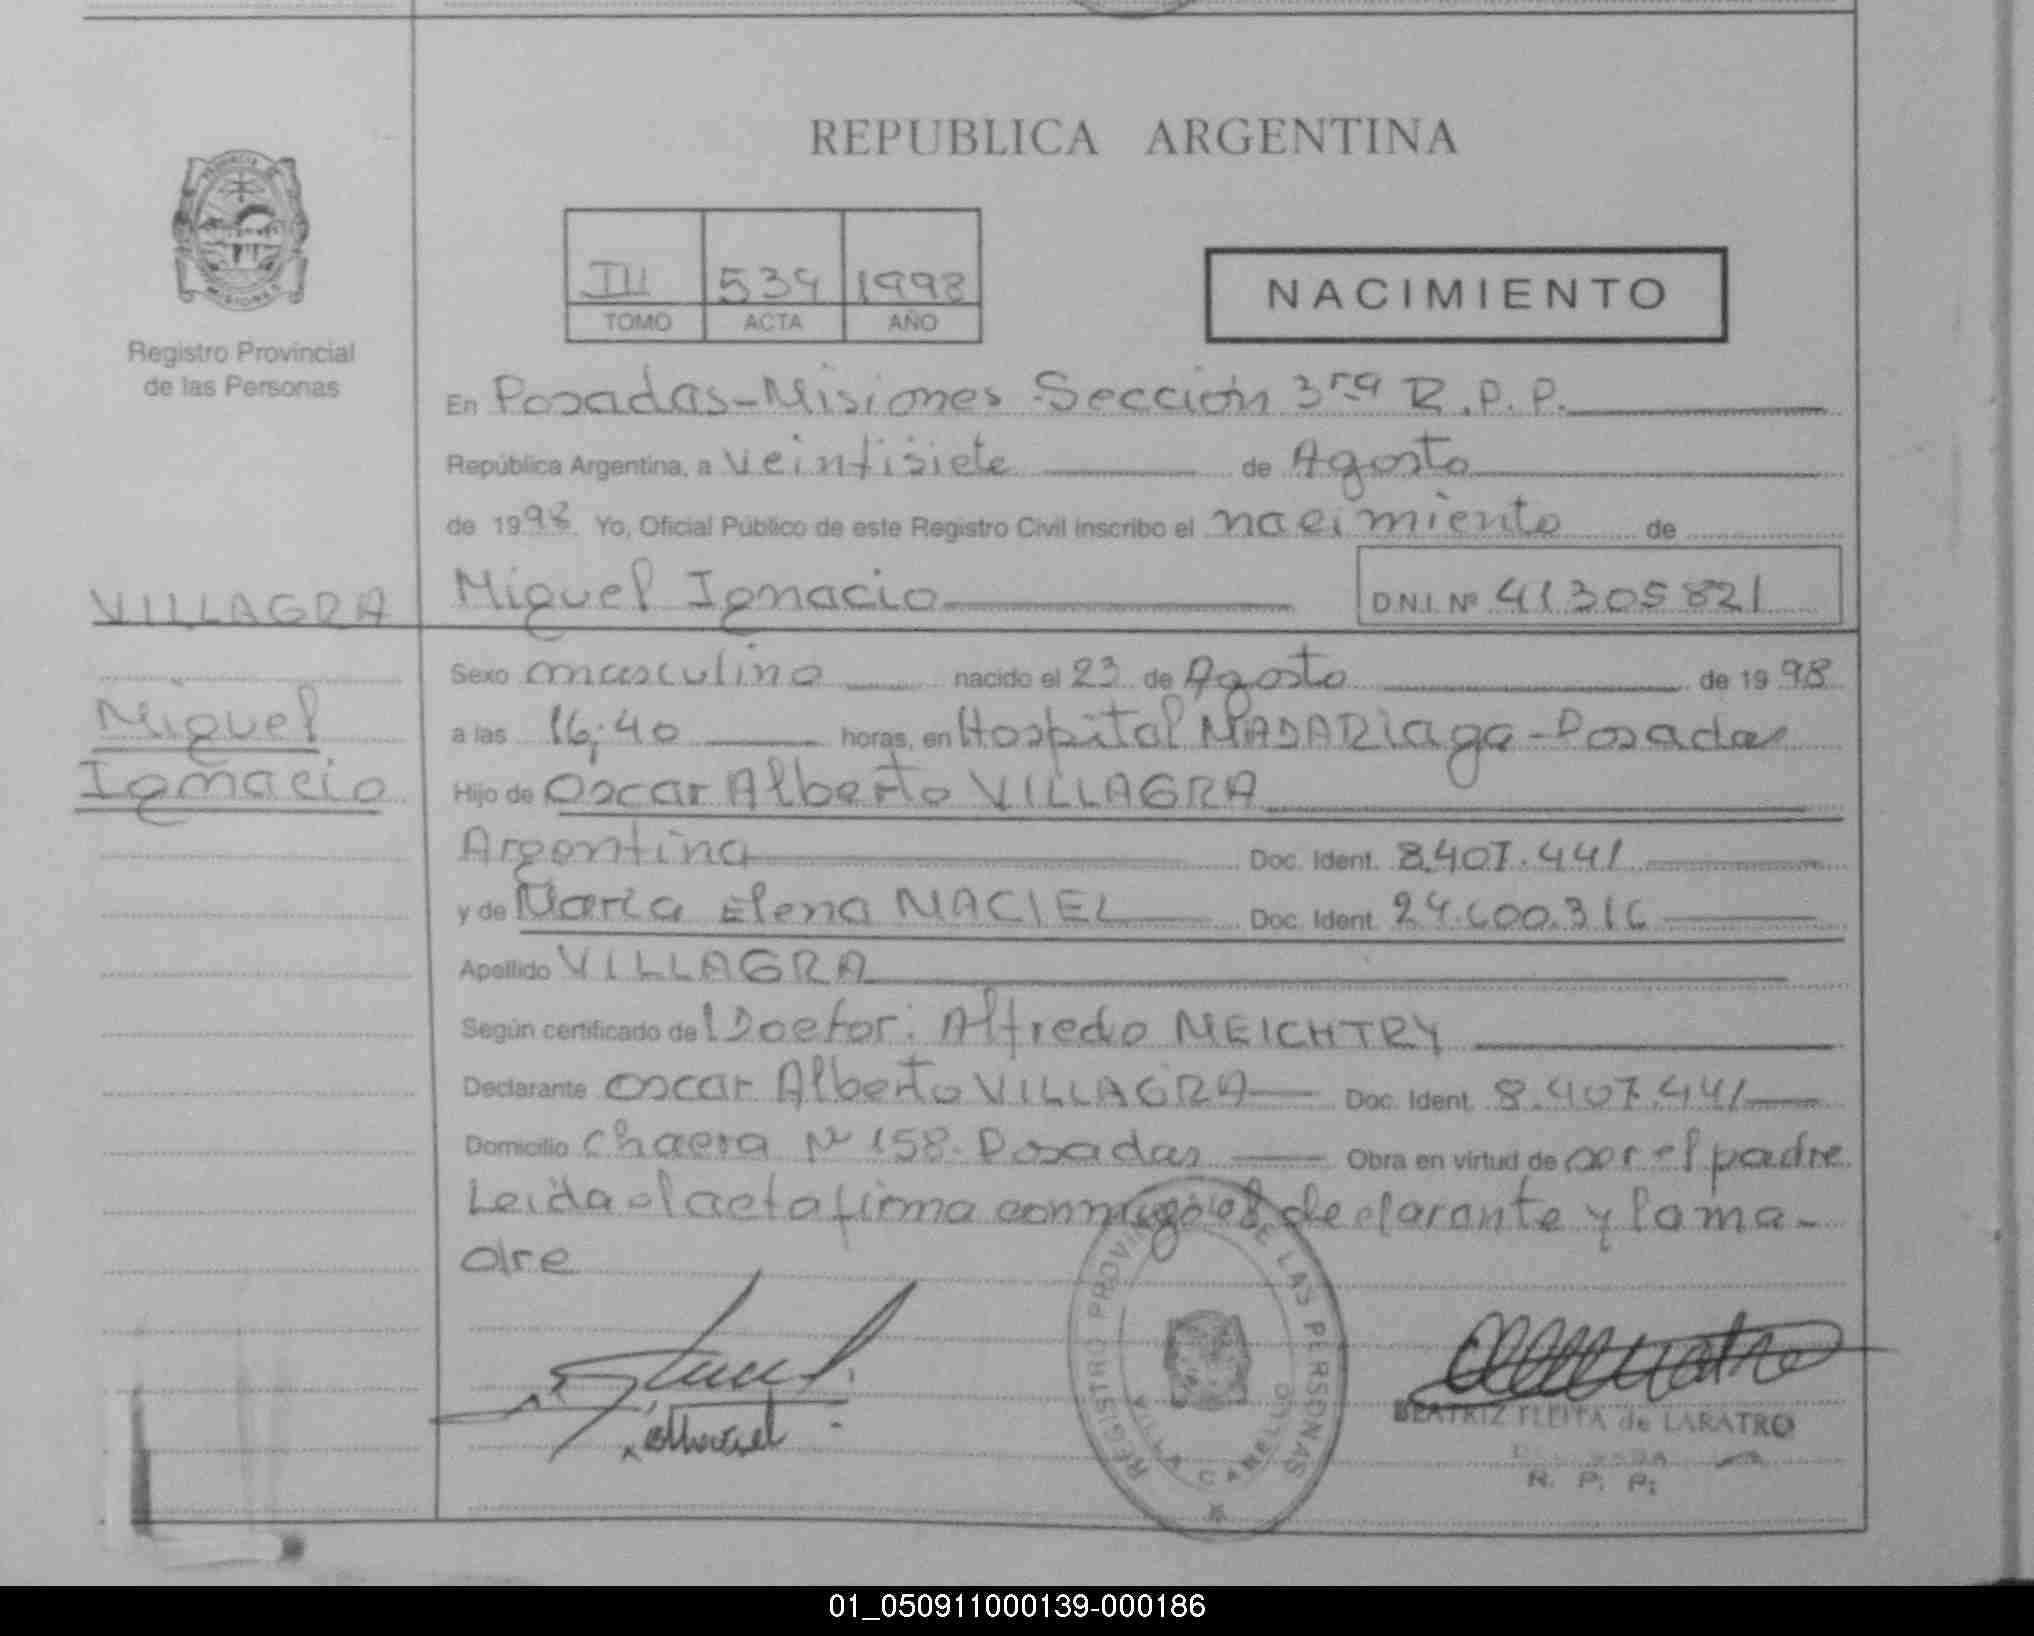 REPUBLICA ARGENTINA
PROVINCIA
MISIONES
Registro Provincial
de las Personas
III 534 1998
TOMO ACTA AÑO
NACIMIENTO
En Posadas-Misiones Sección 3ra R.P.P.
República Argentina, a veintisiete de Agosto
de 1998 Yo, Oficial Público de este Registro Civil inscribo el nacimiento de
VILLAGRA
Miguel Ignacio D.N.I. Nº 41305821
Sexo masculino nacido el 23 de Agosto de 1998
Miguel
Ignacio
a las 16:40 horas, en Hospital MADARiaga-Posadas
Hijo de Oscar Alberto VILLAGRA
Argentina Doc. Ident. 8.407.441
y de María Elena MACIEL Doc. Ident. 24.600.316
Apellido VILLAGRA
Según certificado de Doctor: Alfredo MEICHTRY
Declarante Oscar Alberto VILLAGRA Doc. Ident. 8.407.441
Domicilio Chacra Nº 158-Posadas Obra en virtud de ser el padre
Leida el acta firma conmigo el declarante y la ma-
dre
REGISTRO PROVINCIAL DE LAS PERSONAS
VILLA CABELLO
BEATRIZ FLEITA de LARATRO
R. P. P.
01_050911000139-000186